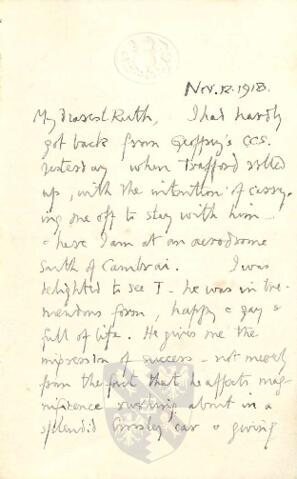 Nov. 12. 1918.
My dearest Ruth, I had hardly
got back from Geoffrey's CCS.
yesterday when Trafford rolled
up, with the intention of carry-
ing me off to stay with him –
& here I am at an aerodrome
South of Cambrai. I was
delighted to see T – he was in tre-
mendous form, happy & gay &
full of life. He gives me the
impression of success – not merely
from the fact that he affects mag-
nificence rushing about in a
splendid Crossley car & giving